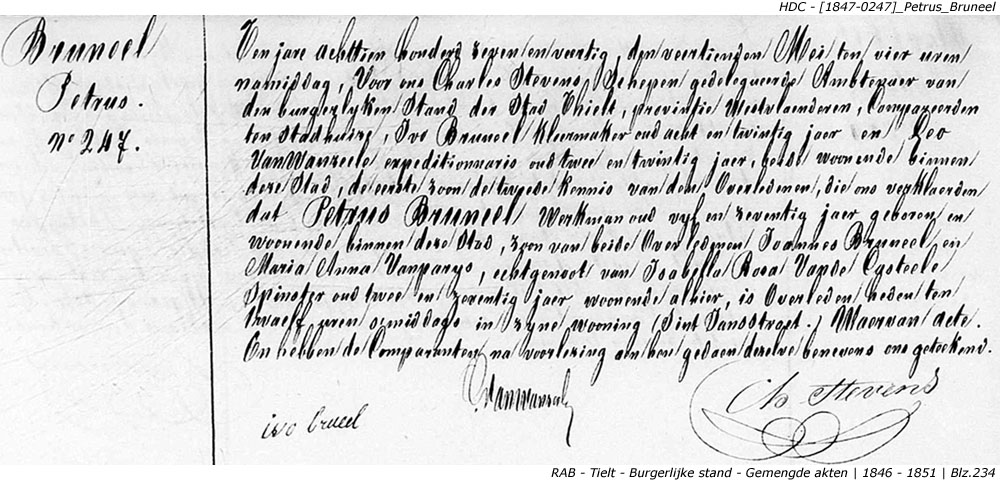 HDC - [1847-0247]_Petrus_Bruneel
Bruneel
Petrus.
n° 247.
Ten jare achttien honderd zeven en veertig, den veertienden Mei ten vier uren
namiddag, Voor ons Charles Stevens, Schepen gedelegueerde Ambtenaer van
den burgerlyken Stand der Stad Thielt, provintie Westvlaenderen, Compareerden
ten Stadhuize, Ivo Bruneel kleermaker oud acht en twintig jaer en Leo
VanWanzeele expeditionnaris oud twee en twintig jaer, beide woonende binnen
deze Stad, de eerste zoon de tweede kennis van den Overledenen, die ons verklaerden
dat Petrus Bruneel Werkman oud vyf en zeventig jaer geboren en
woonende binnen deze Stad, zoon van beide Overledenen Joannes Bruneel en
Maria Anna Vanparys, echtgenoot van Isabella Rosa Vande Casteele
Spinster oud twee en zeventig jaer, woonende alhier, is Overleden heden ten
twaelf uren smiddags in zyne wooning (Sint Jansstraet.) Waervan acte.
En hebben de Comparanten na voorlezing aen hen gedaen dezelve benevens ons geteekend.
ivo brueel
VanWanzele
Ch Stevens
RAB - Tielt - Burgerlijke stand - Gemengde akten | 1846 - 1851 | Blz.234